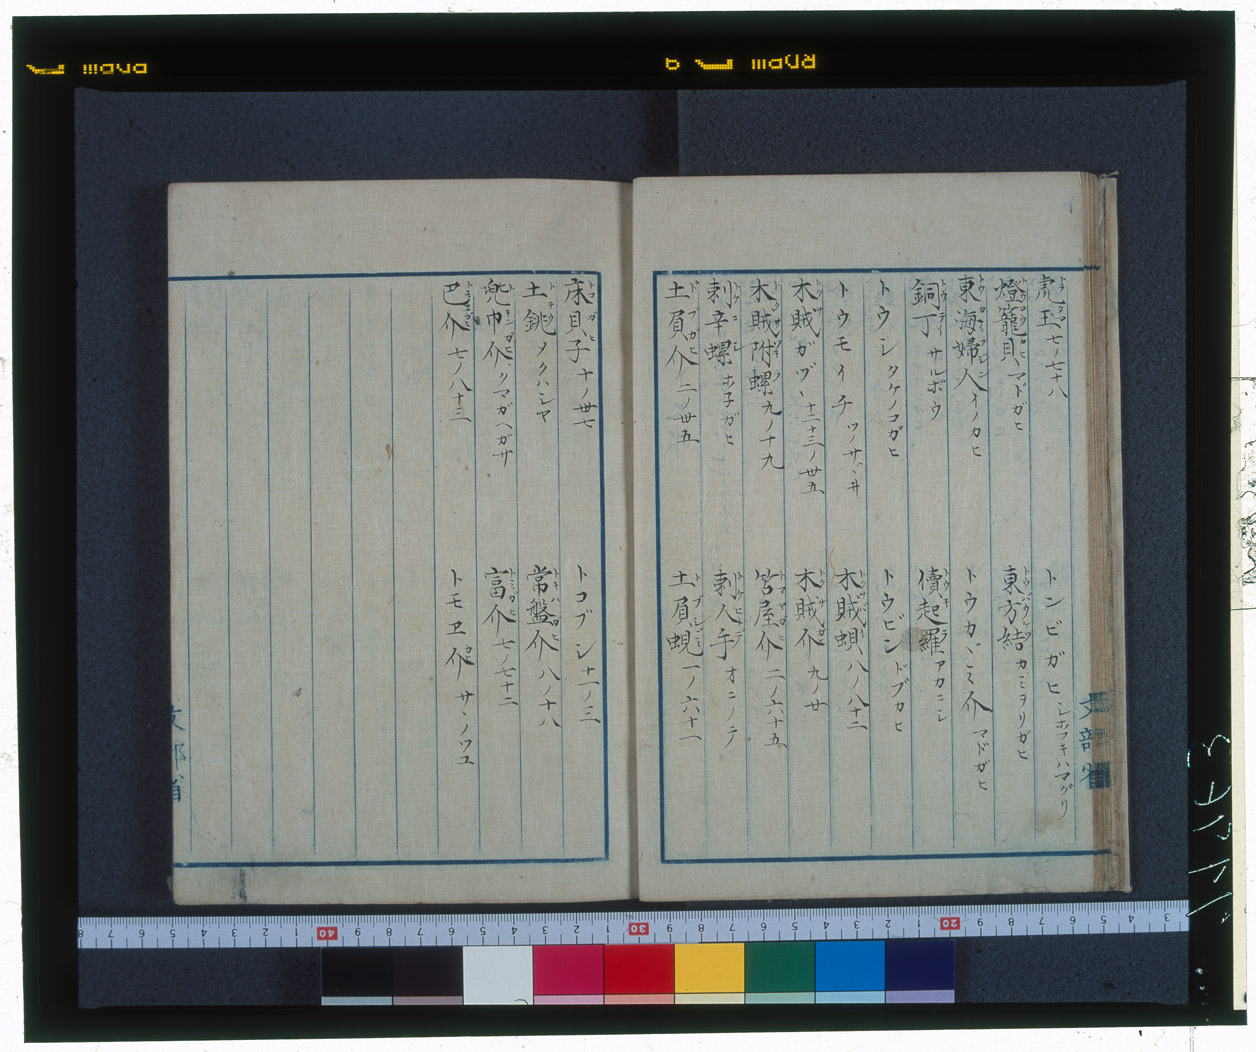 虎玉 七ノ七十八
トンビガヒ シホフキハマグリ
燈籠貝 マドガヒ
東方結 カミヲリガヒ
東海婦人 イノカヒ
トウカヾミ介 マドガヒ
銅丁 サルボウ
償起羅 アカニシ
トウシ タケノコガヒ
トウビン ドブカヒ
トウモイチ ワノサヾヰ
木賊蛽 八ノ八十二
木賊ガヅヽ 十二十三ノ卅五
木賊介 九ノ廿
木賊附螺 九ノ十九
筥屋介 二ノ六十五
刺辛螺 ホ子ガヒ
刺人手 オニノテ
土負介 二ノ卅五
土負蜆 一ノ六十一
床貝子 十ノ卅七
トコブシ 十一ノ三
土銚 メクハジヤ
常盤介 八ノ十八
兜巾介 クマガヘガサ
富介 七ノ七十二
巴介 七ノ八十三
トモヱ介 サヽノツユ
文部省
文部省